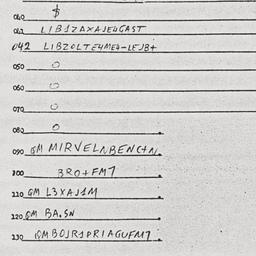 040 $
041 LIB1ZAXAJE4GAST
042 LIBZOLTE4ME4-LEJB+
050 O
060 O
070 O
080 O
090 GM MIRVELNBENC+N
100 BRO+FM7
110 GM L3XAJ1M
120 GM BA.SN
130 GMBOJR1PRIAGUFM7